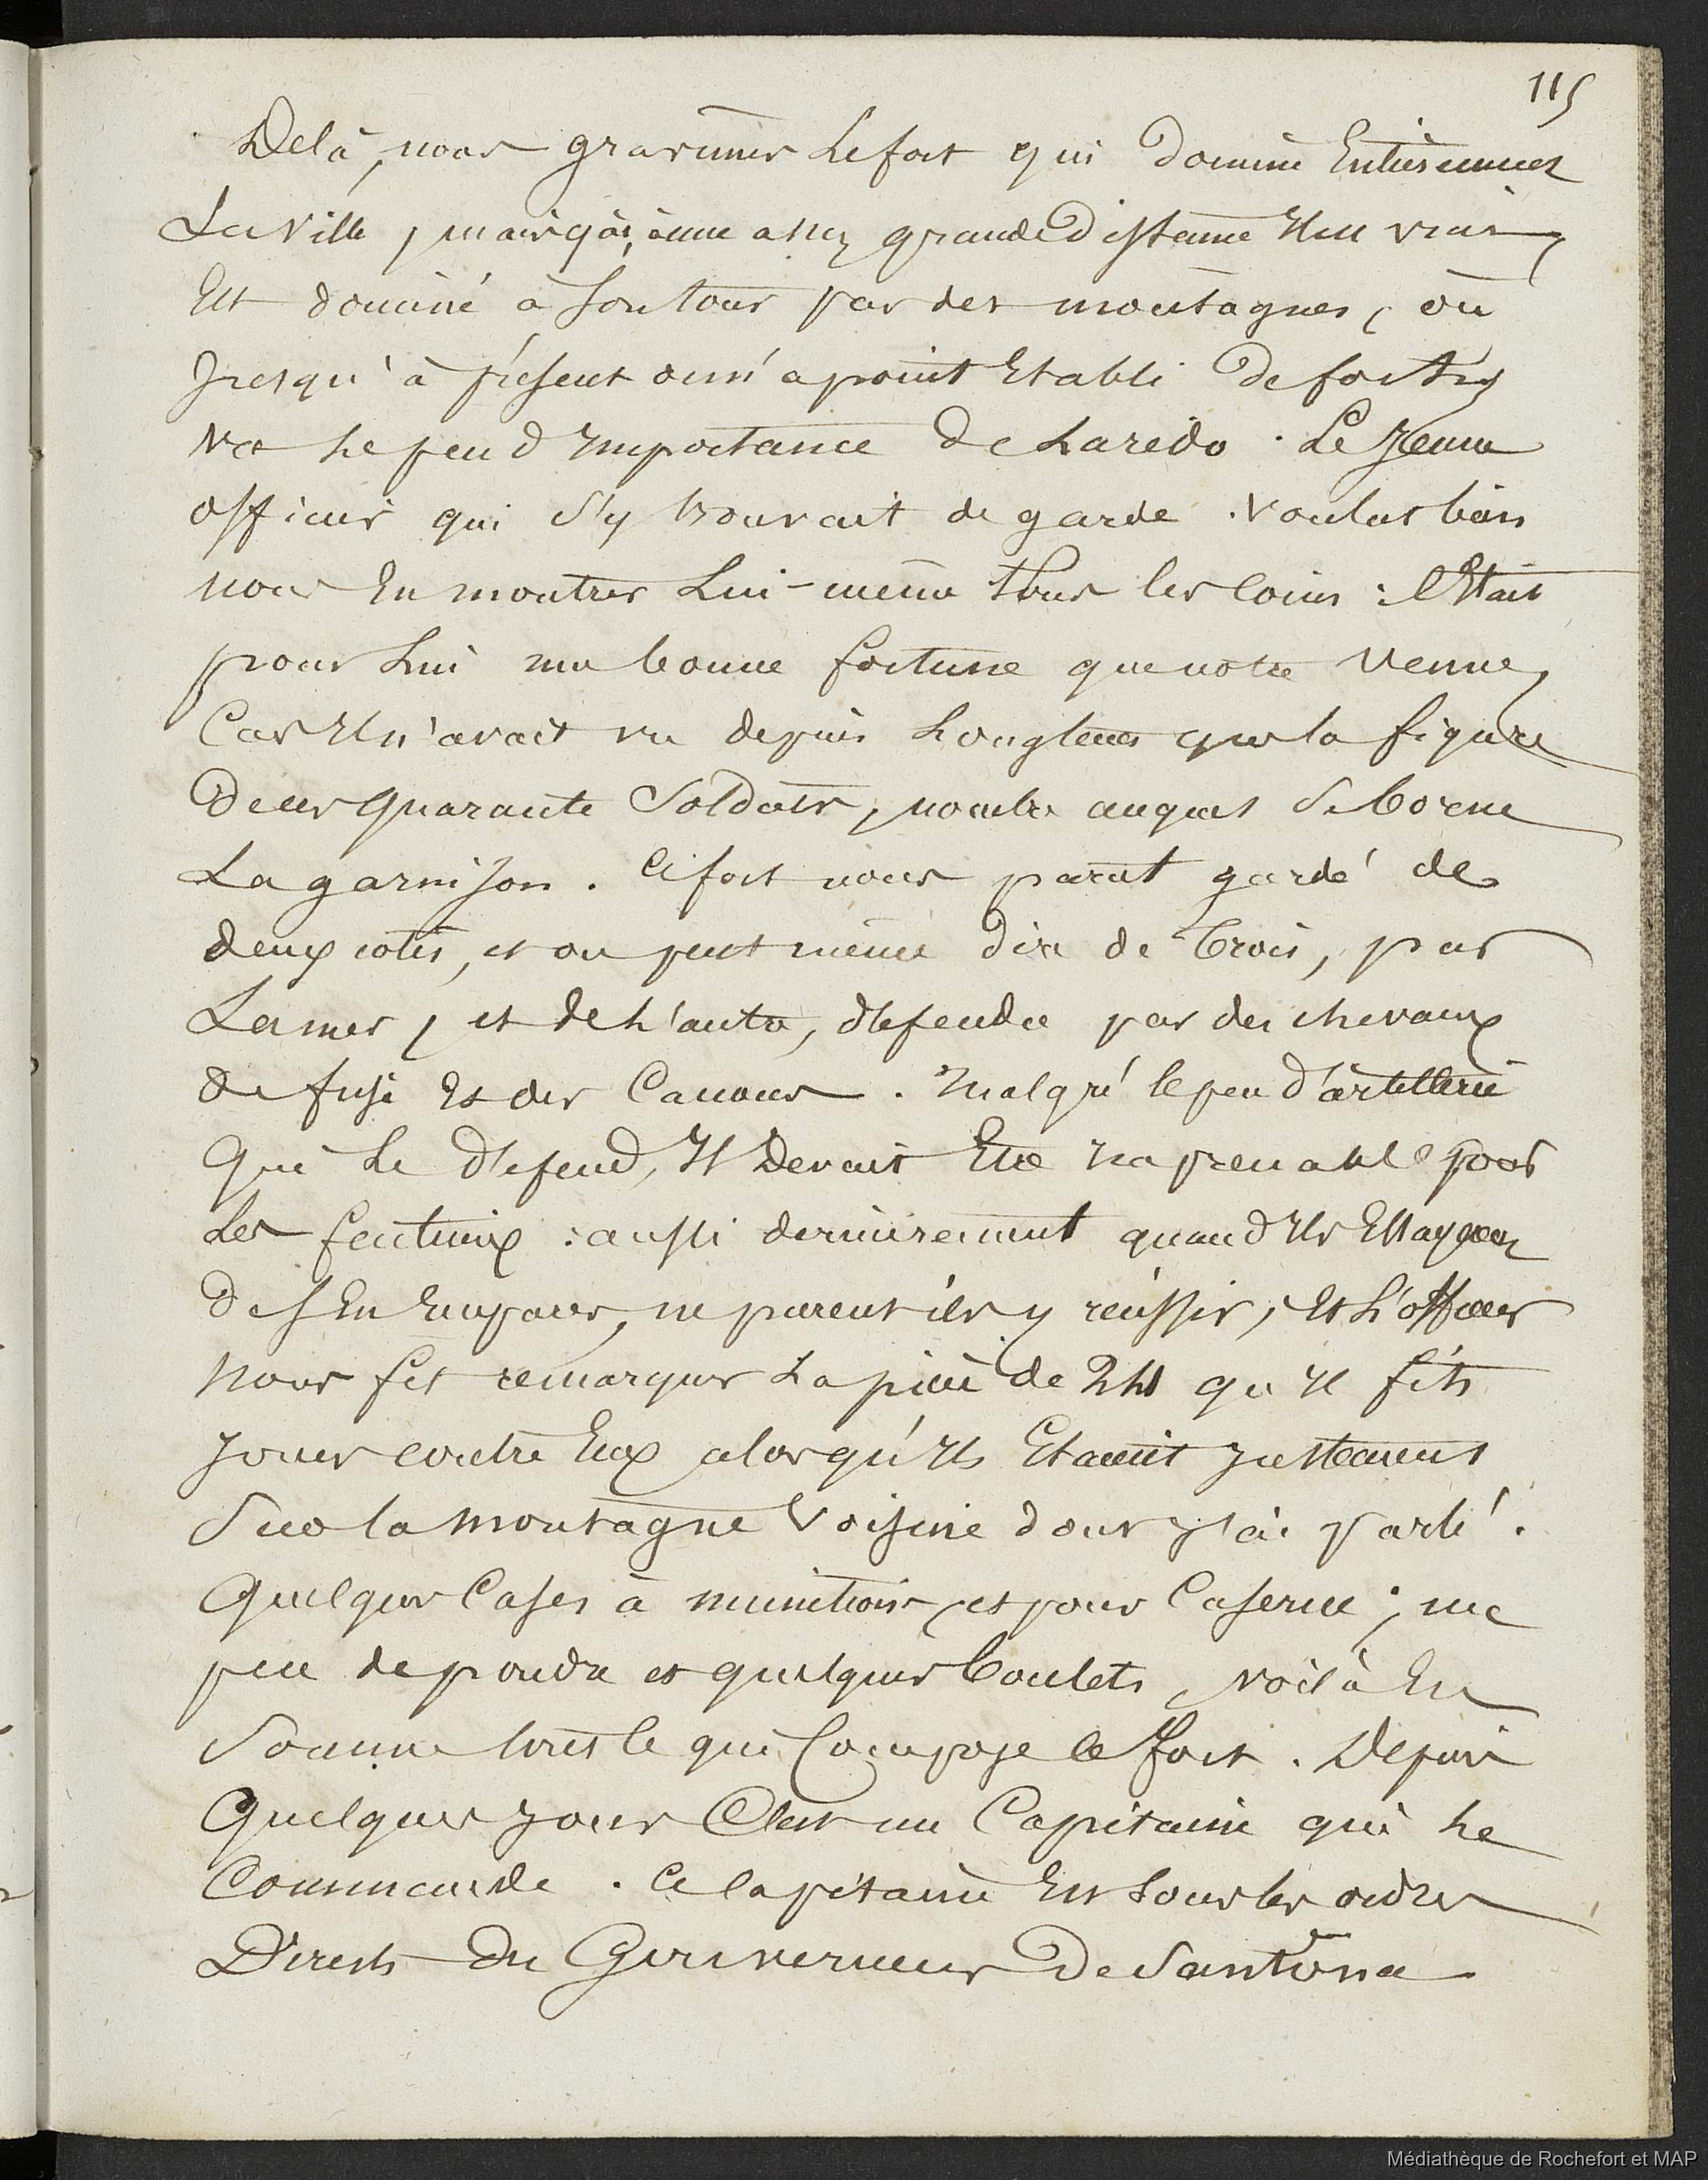 115
Delà, nous gravimes Le fort qui domine Entièrement
La Ville, mais qui, à une assez grande Distance Il est vrai,
Est dominé à son tour par des montagnes, où
Jusqu'à présent on n'a point Etabli de forts,
Vu Le peu d'Importance de Laredo. Le Jeune
officier qui s'y trouvait de garde voulut bien
nous En montrer Lui-même tous les coins : C'Etait
pour Lui une bonne fortune que notre venue,
Car Il n'avait vu depuis Longtems que la figure
de ses Quarante Soldats, nombre auquel se borne
La garnison. Ce fort nous parut gardé de
deux cotés, et on peut même dire de trois, par
La mer, et de L'autre, défendu par des chevaux
de frise Et des Canons. Malgré le peu d'artillerie
Qui Le défend, Il Devait Etre imprenable pour
Les factieux : aussi dernièrement quand Ils Essayèrent
de s'En Emparer, ne purent ils y réussir, Et L'officier
Nous fit remarquer La pièce de 24 qu'Il fit
Jouer contre Eux alors qu'Ils Etaient Justement
Sur la montagne Voisine dont J'ai parlé.
Quelques Cases à munitions, et pour Caserne ; un
peu de poudre et quelques boulets, voilà En
Somme tout ce qui Compose le fort. Depuis
Quelques Jours C'est un Capitaine qui Le
Commande. Ce Capitaine Est sous les ordres
Directs du Gouverneur De Santoña
Médiathèque de Rochefort et MAP